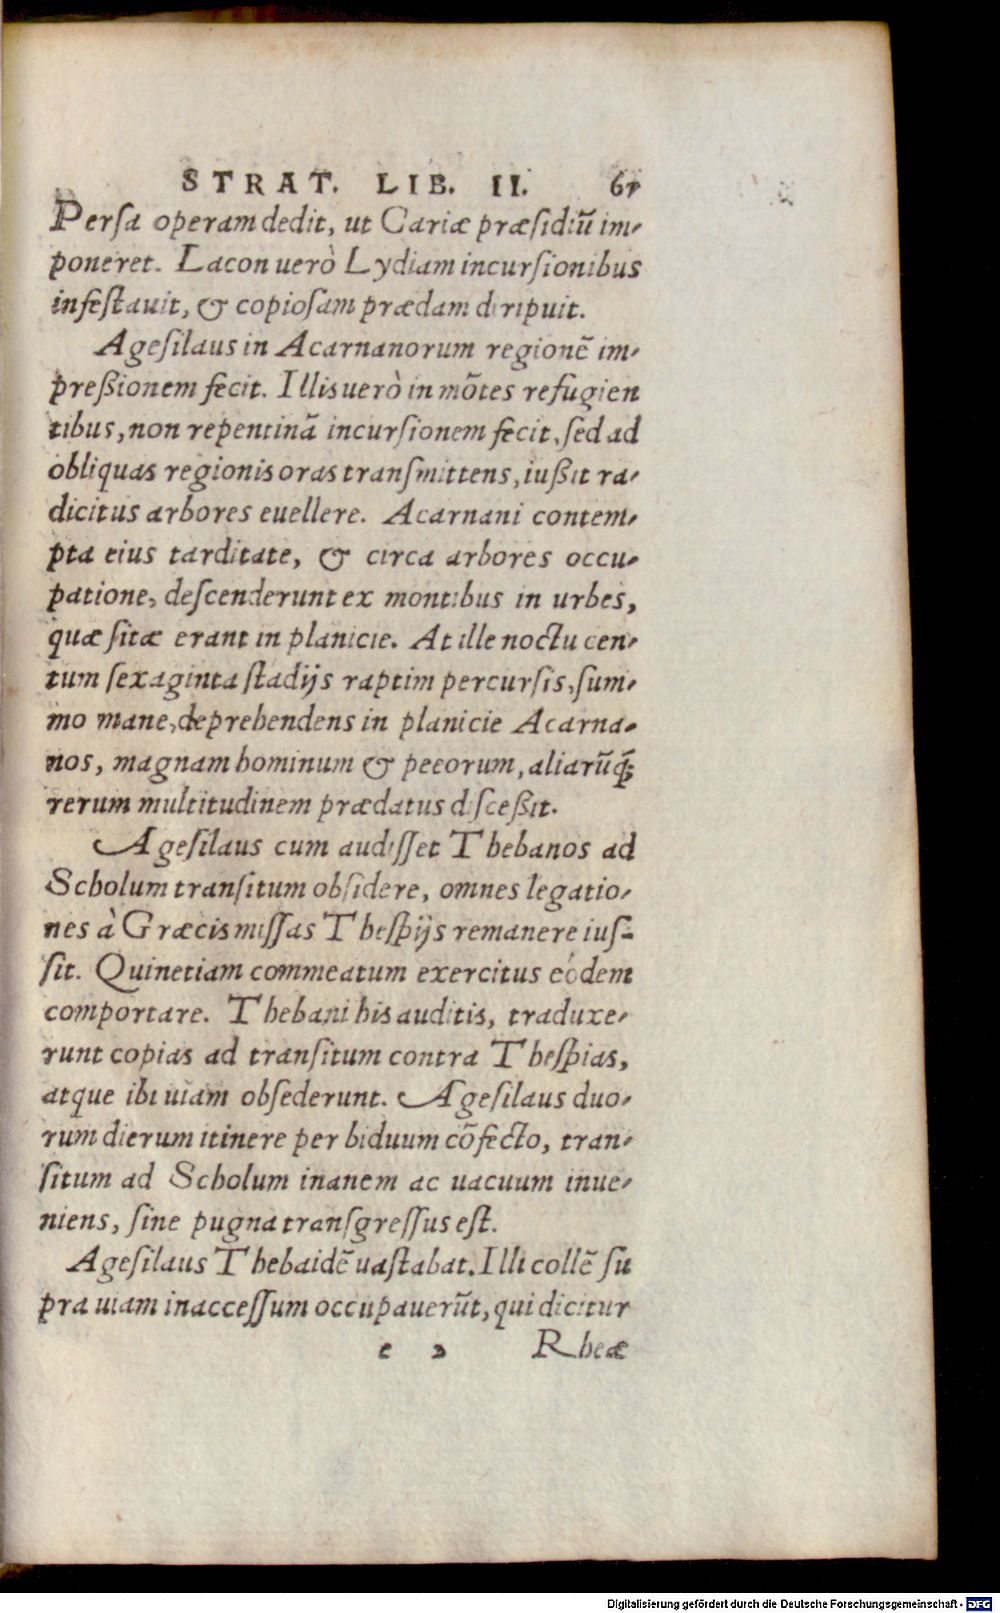 STRAT. LIB. II. 67
Persa operam dedit, ut Cariæ præsidiū im-
poneret. Lacon uerò Lydiam incursionibus
infestauit, & copiosam prædam diripuit.
Agesilaus in Acarnanorum regionē im-
preßionem fecit. Illis uerò in mōtes refugien
tibus, non repentinā incursionem fecit, sed ad
obliquas regionis oras transmittens, iußit ra-
dicitus arbores euellere. Acarnani contem-
pta eius tarditate, & circa arbores occu-
patione, descenderunt ex montibus in urbes,
quæ sitæ erant in planicie. At ille noctu cen-
tum sexaginta stadijs raptim percursis, sum-
mo mane, deprehendens in planicie Acarna-
nos, magnam hominum & pecorum, aliarūq́;
rerum multitudinem prædatus disceßit.
Agesilaus cum audisset Thebanos ad
Scholum transitum obsidere, omnes legatio-
nes à Græcis missas Thespijs remanere ius-
sit. Quinetiam commeatum exercitus eódem
comportare. Thebani his auditis, traduxe-
runt copias ad transitum contra Thespias,
atque ibi uiam obsederunt. Agesilaus duo-
rum dierum itinere per biduum cōfecto, tran-
situm ad Scholum inanem ac uacuum inue-
niens, sine pugna transgressus est.
Agesilaus Thebaidē uastabat. Illi collē su
pra uiam inaccessum occupauerūt, qui dicitur
e 2 Rheæ
Digitalisierung gefördert durch die Deutsche Forschungsgemeinschaft - DFG